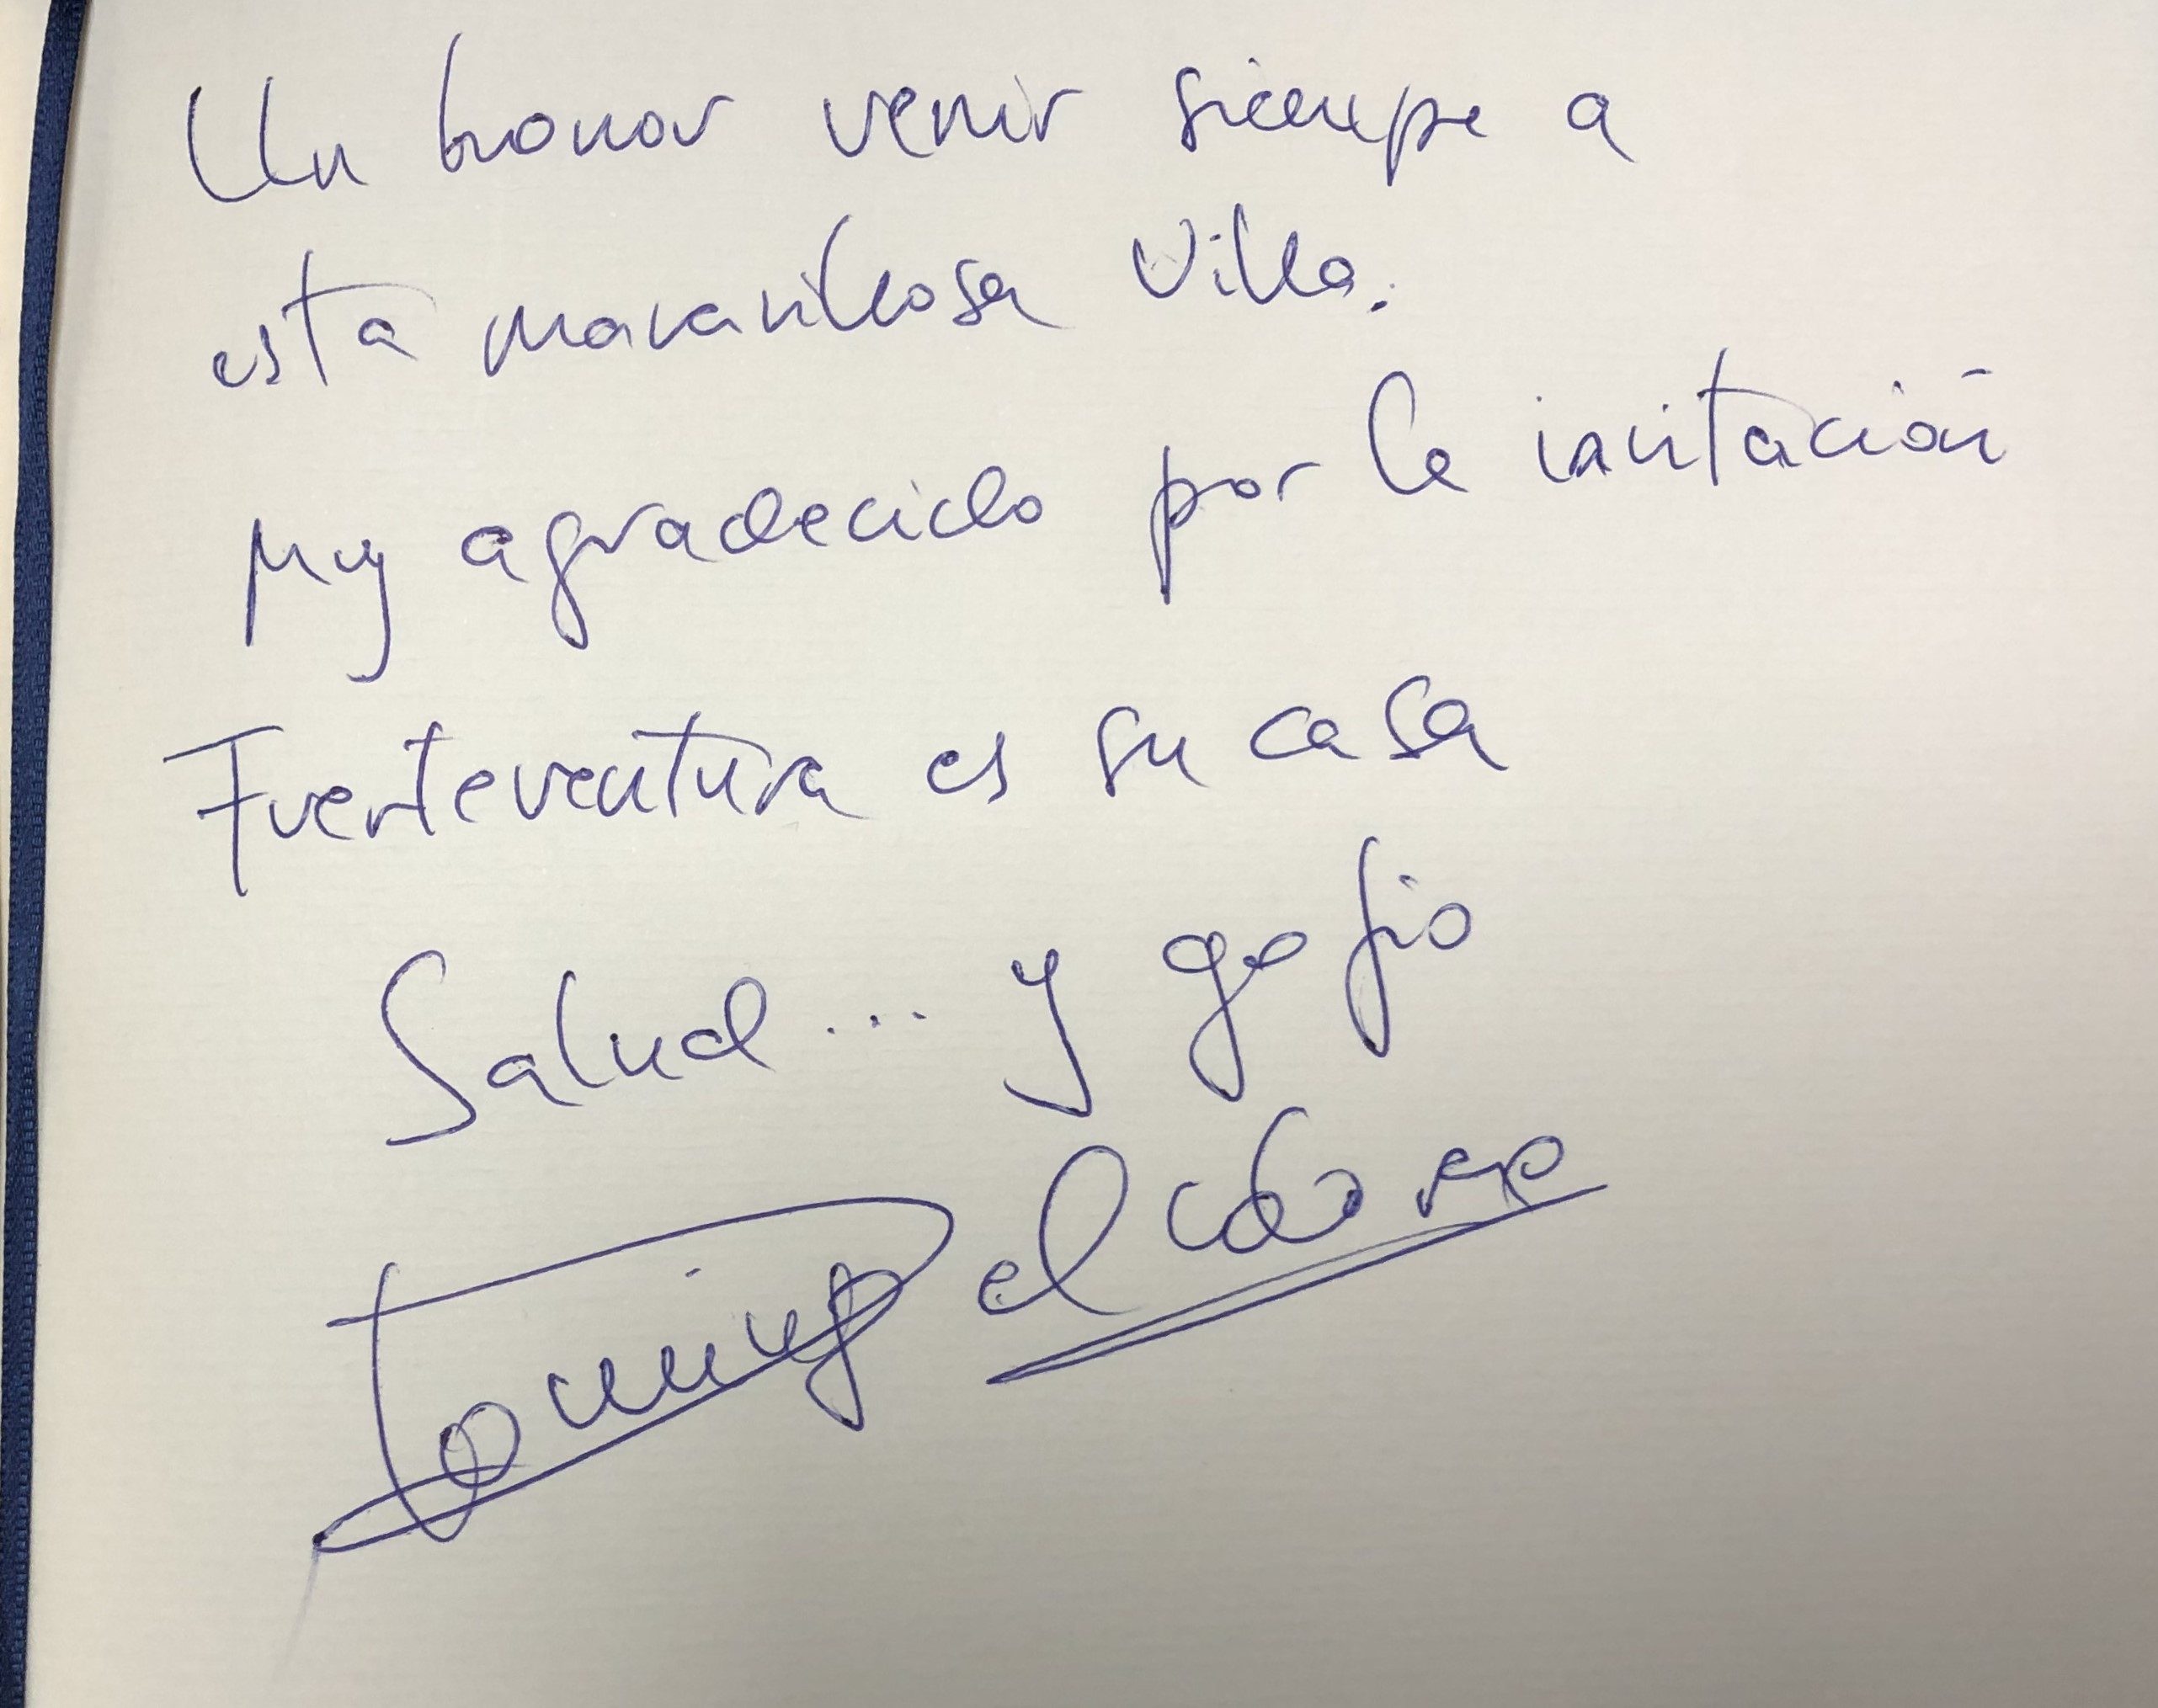 Un honor venir siempre a
esta maravillosa Villa.
Muy agradecido por la invitación
Fuerteventura es su casa
Salud... y gofio
el cabrero